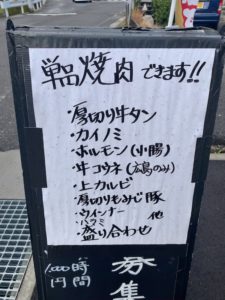 単品焼肉できます!!
・厚切り牛タン
・カイノミ
・ホルモン(小腸)
・牛コウネ(広島のみ)
・上カルビ
・厚切りもみじ豚
・ウインナー
・ハラミ 他
・盛り合わせ
時間
1,000円
募集